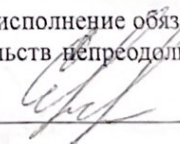 исполнение обяз
льств непреодоли